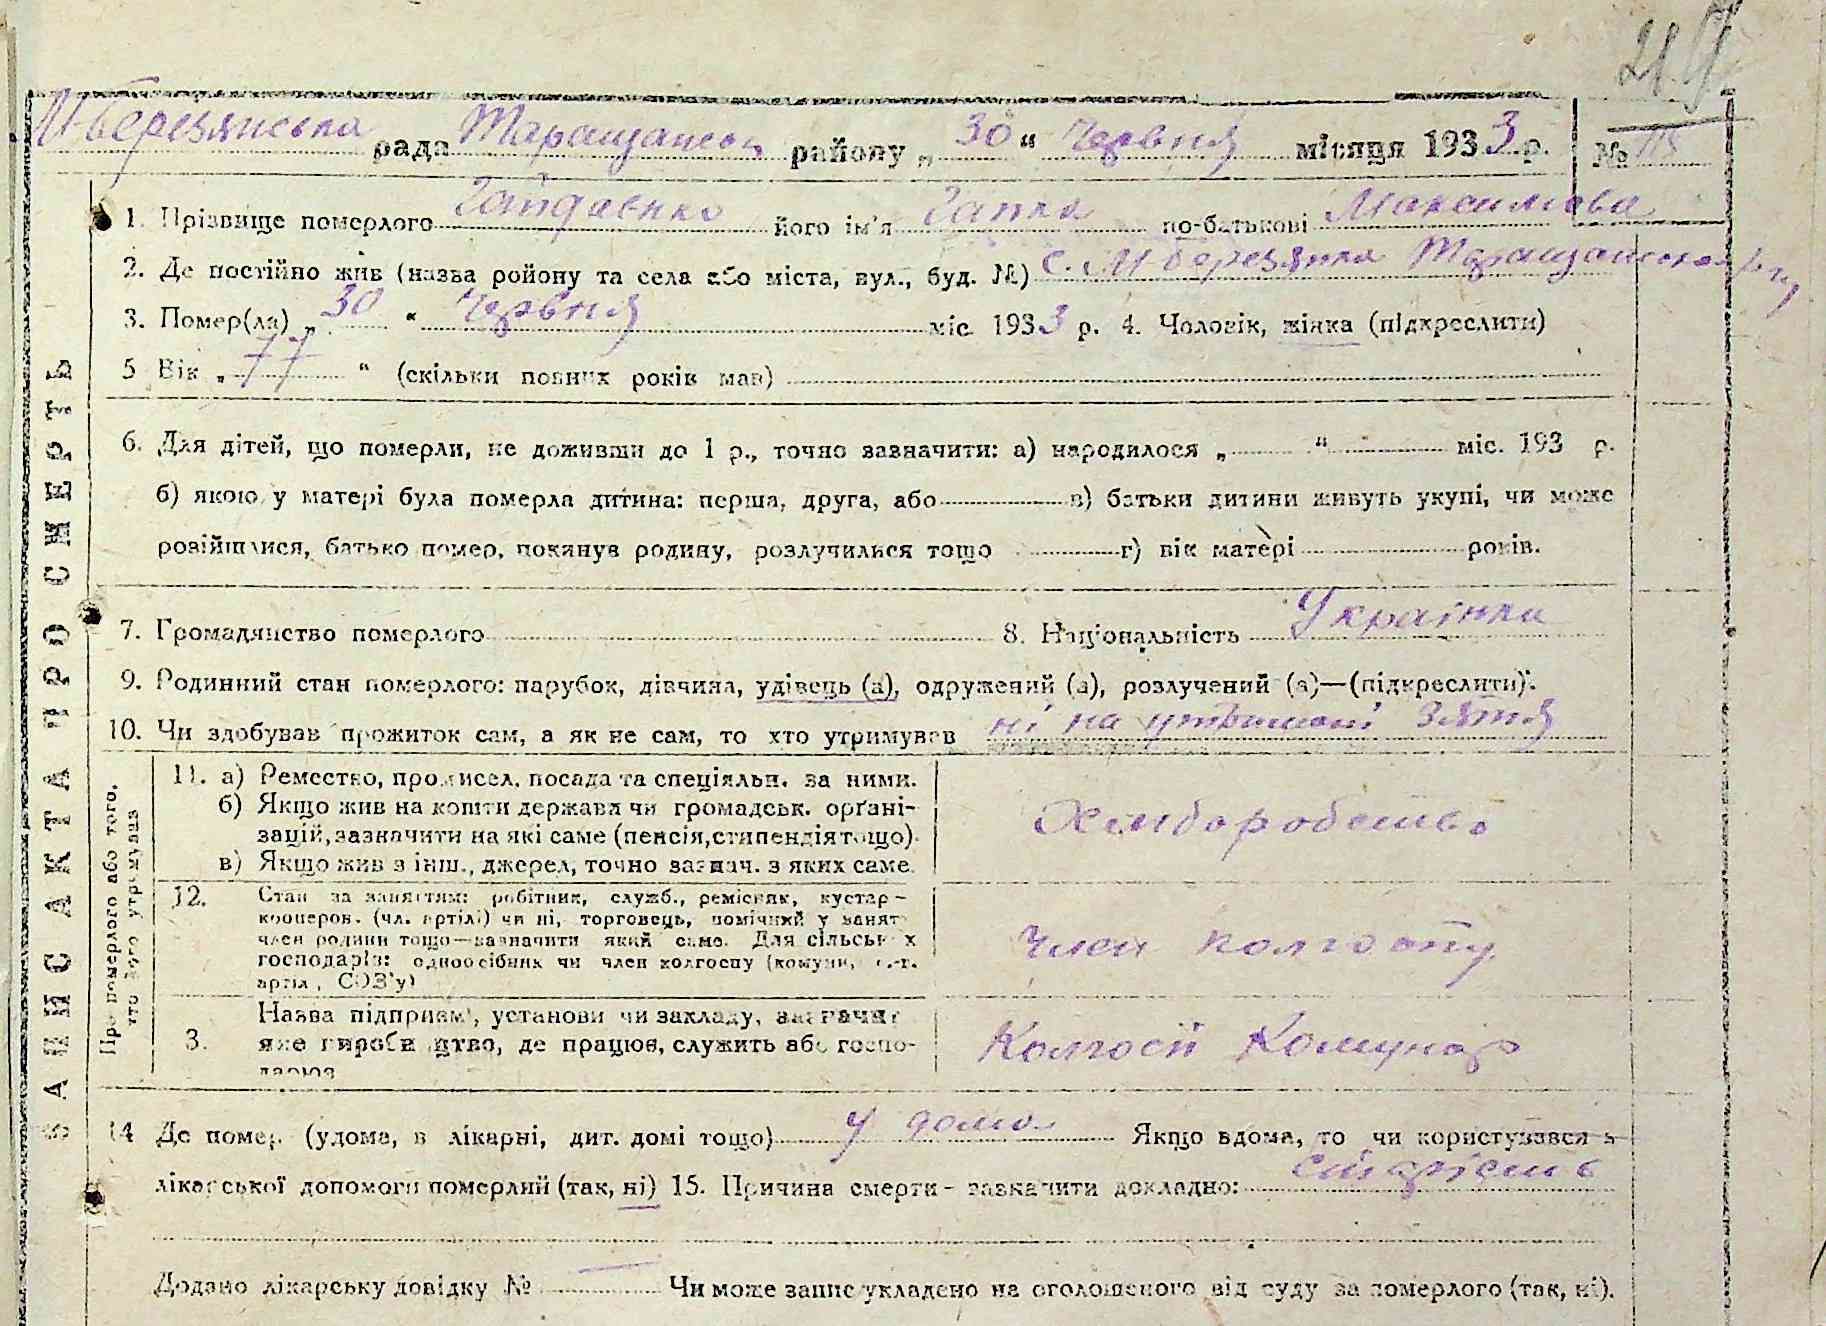 М-березянська рада Таращанськ району „ 30 “ Червня місяця 1933 р. № 115
1. Прізвище померлого Гайдаєнко його ім'я Гапка по-батькові Максимова
2. Де постійно жив (назва ройону та села або міста, вул., буд. №) с. М березянка Таращанського р-ну
3. Помер(ла) „ 30 “ Червня міс. 1933 р. 4. Чоловік, жінка (підкреслити)
5 Вік „ 77 “ (скільки повних років мав)
6. Для дітей, що померли, не доживши до 1 р., точно зазначити: а) народилося „ “ міс. 193 р.
б) якою у матері була померла дитина: перша, друга, або в) батьки дитини живуть укупі, чи може
розійшлися, батько помер, покинув родину, розлучилися тощо г) вік матері років.
7. Громадянство померлого 8. Національність Українка
9. Родинний стан померлого: парубок, дівчина, удівець (а), одружений (а), розлучений (а)—(підкреслити).
10. Чи здобував прожиток сам, а як не сам, то хто утримував ні на утримані зятя
ЗАПИС АКТА ПРО СМЕРТЬ
Про померлого або того,
хто його утримував
11. а) Ремество, промисел, посада та спеціяльн. за ними.
б) Якщо жив на кошти держава чи громадськ. орґані-
зацій, зазначити на які саме (пенсія, стипендія тощо).
в) Якщо жив з інш., джерел, точно зазнач. з яких саме.
Хліборобство
12. Стан за заняттям: робітник, служб., ремісник, кустар-
кооперов. (чл. артілі) чи ні, торговець, помічний у занят
член родини тощо—зазначити який саме. Для сільськ х
господарів: одноосібник чи член колгоспу (комуни,
артіл, СОЗ'у)
Член колгоспу
3. Назва підприєм, установи чи закладу, зазначит
яке виробництво, де працює, служить або госпо-
дарює
Колгосп Комунар
14 Де помер (удома, в лікарні, дит. домі тощо) у дома Якщо вдома, то чи користувався з
лікарської допомоги померлий (так, ні) 15. Причина смерти - зазначити докладно: старість
Додано лікарську довідку № — Чи може запис укладено на оголошеного від суду за померлого (так, ні).